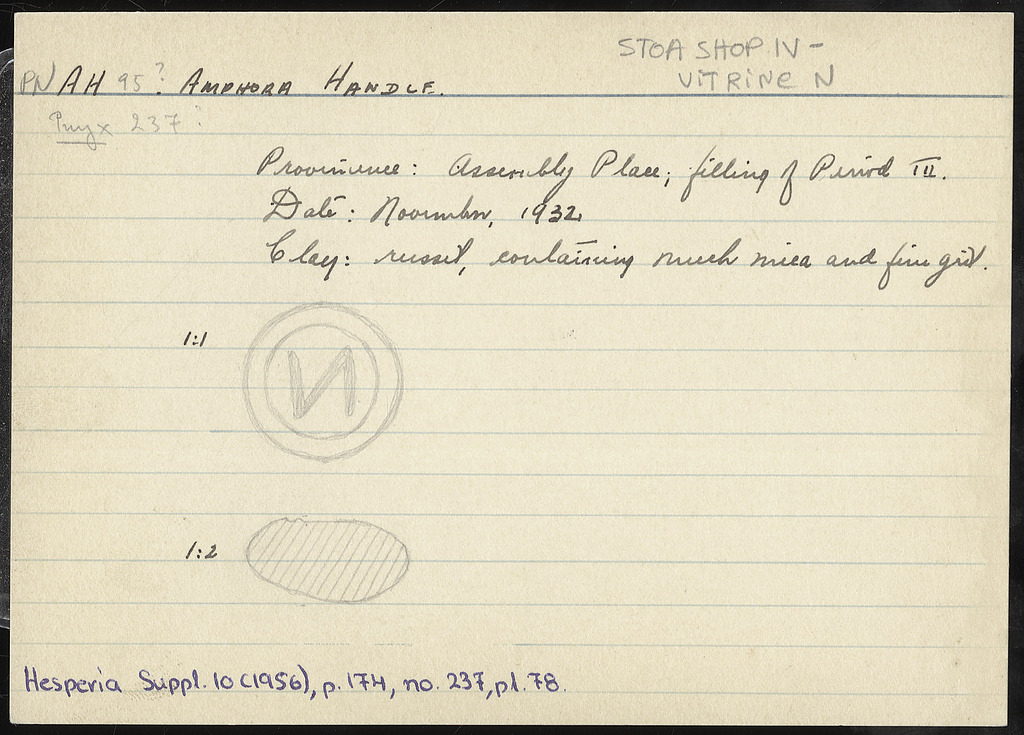 STOA SHOP IV -
VITRINE N
PN AH 95? AMPHORA HANDLE.
Pnyx 237?
Provinience: Assembly Place; filling of Period III.
Date: November, 1932
Clay: russet, containing much mica and fine grit.
1:1
И
1:2
Hesperia Suppl. 10 (1956), p. 174, no. 237, pl. 78.